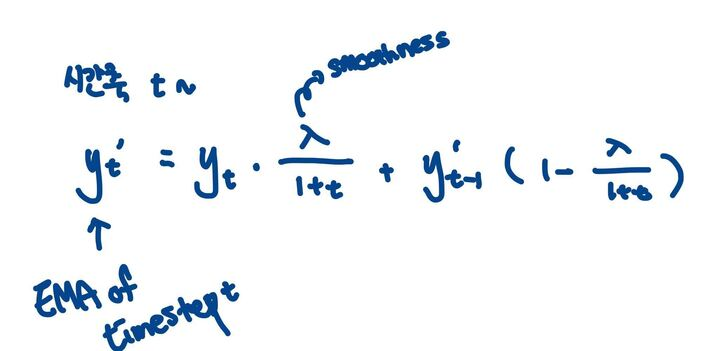 smoothness
시간축 t ~
y't = yt · λ/(1+t) + y't-1 (1 - λ/(1+t))
EMA of
timestep t